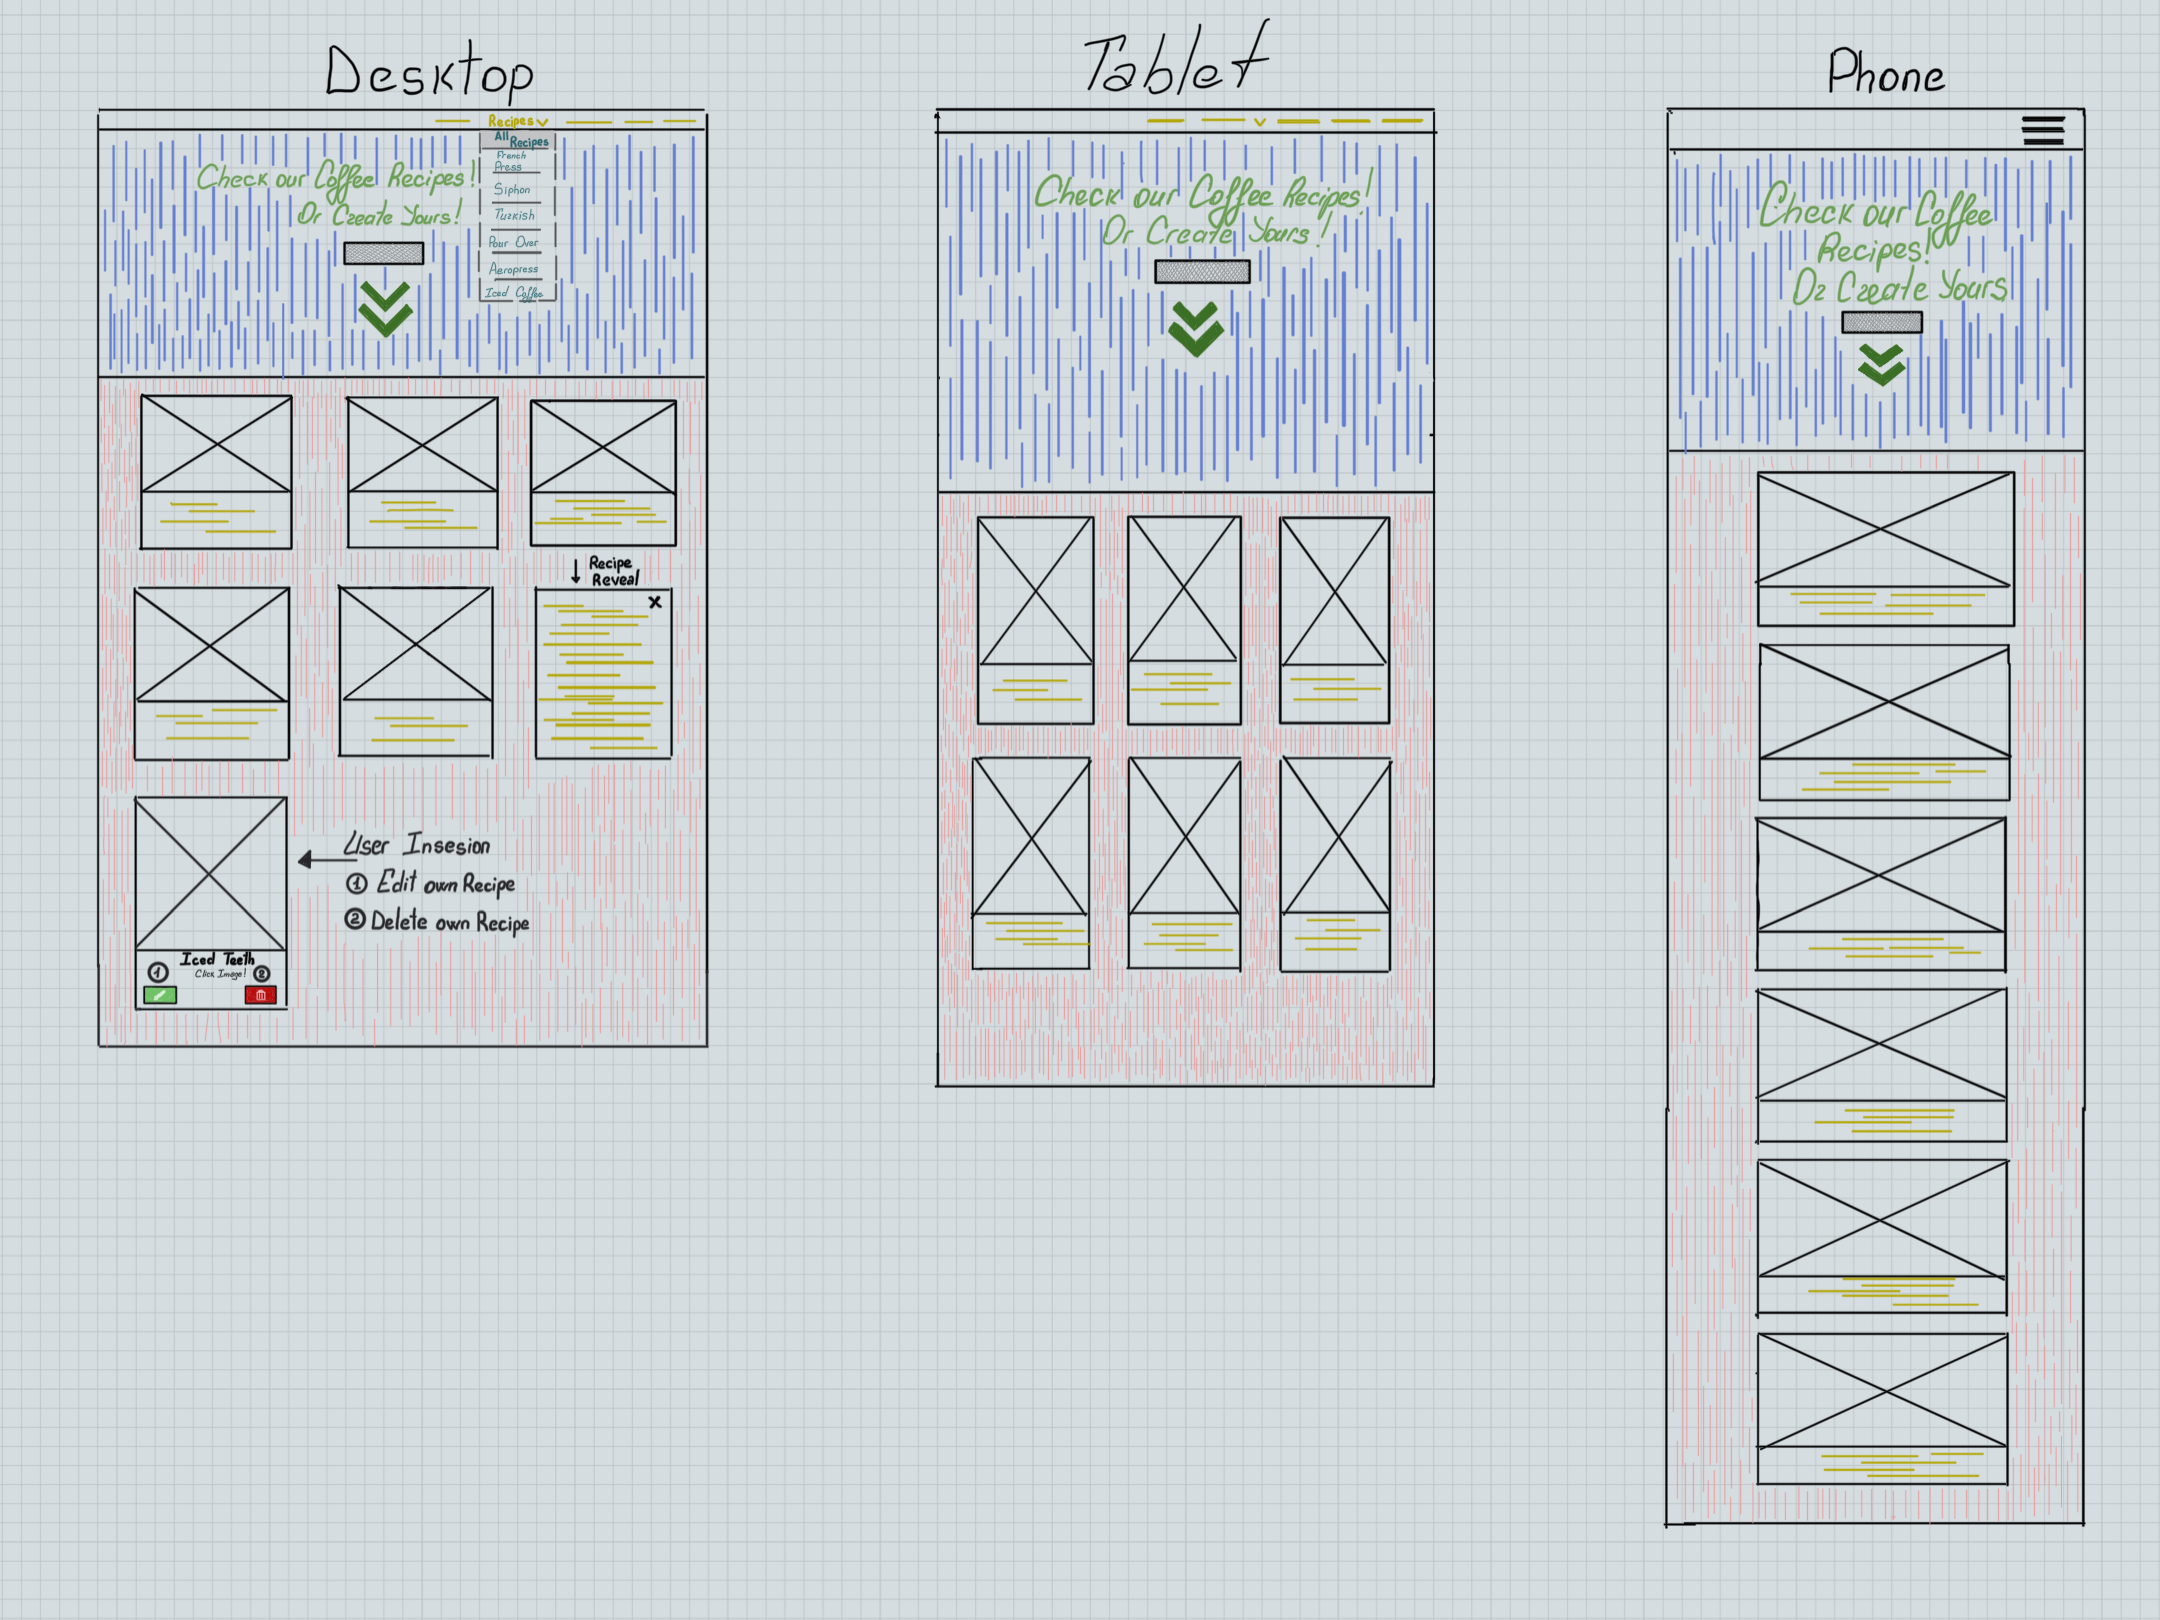 Desktop
Recipes
All Recipes
French Press
Siphon
Turkish
Pour Over
Aeropress
Iced Coffee
Check our Coffee Recipes!
Or Create Yours!
Recipe
Reveal
X
User Insesion
1 Edit own Recipe
2 Delete own Recipe
Iced Teeth
Click Image!
1 2
Tablet
Check our Coffee Recipes!
Or Create Yours!
Phone
Check our Coffee
Recipes!
Or Create Yours